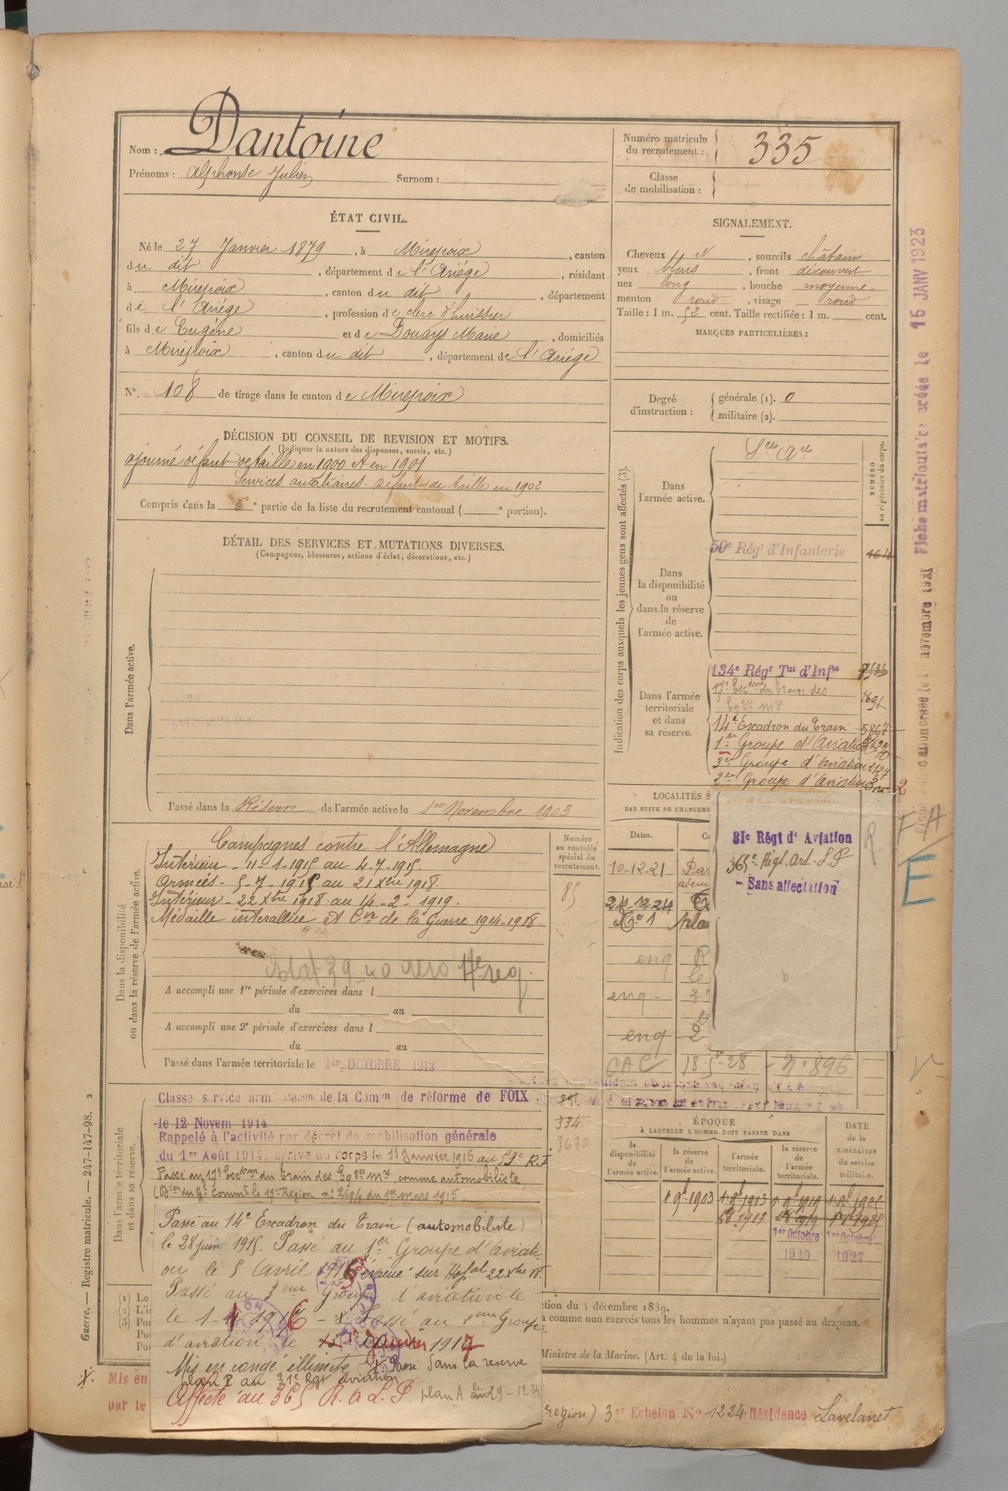 Nom : Dantoine
Prénoms : Alphonse Julien Surnom :
Numéro matricule du recrutement : 335
Classe de mobilisation :
ÉTAT CIVIL.
Né le 27 Janvier 1879, à Mirepoix, canton
du dit, département de l'Ariége, résidant
à Mirepoix, canton du dit, département
de l'Ariége, profession de clerc d'huissier
fils de Eugène et de Douays Marie, domiciliés
à Mirepoix, canton du dit, département de l'Ariége
N° 108 de tirage dans le canton de Mirepoix
SIGNALEMENT.
Cheveux N, sourcils châtains
yeux bleus, front découvert
nez long, bouche moyenne
menton rond, visage rond
Taille : 1 m. 52 cent. Taille rectifiée : 1 m. cent.
MARQUES PARTICULIÈRES :
Degré d'instruction : générale (1). 0
militaire (2).
DÉCISION DU CONSEIL DE REVISION ET MOTIFS.
(Indiquer la nature des dispenses, sursis, etc.)
ajourné défaut de taille en 1900 et en 1901
Services auxiliaires. défaut de taille en 1902
Compris dans la 6e partie de la liste du recrutement cantonal ( e portion).
DÉTAIL DES SERVICES ET MUTATIONS DIVERSES.
(Campagnes, blessures, actions d'éclat, décorations, etc.)
Dans l'armée active.
Passé dans la Réserve de l'armée active le 1er Novembre 1903
Indication des corps auxquels les jeunes gens sont affectés (3).
NUMÉRO au répertoire du corps.
Dans l'armée active.
Dans la disponibilité ou dans la réserve de l'armée active.
59e Régt d'Infanterie
Dans l'armée territoriale et dans sa réserve.
134e Régt Tal d'Infie
17e Escdron du train des
Eqges Mres
14e Escadron du Train
1er Groupe d'Aviation
3e Groupe d'aviation
2e Groupe d'aviation
Dans la disponibilité ou dans la réserve de l'armée active.
Campagnes contre l'Allemagne
Intérieur - 11-1-1915 au 4-7-1915.
Armées - 5-7-1915 au 21 Xbre 1918.
Intérieur - 22 Xbre 1918 au 14-2-1919.
Médaille interalliée et Cve de la Guerre 1914-1918.
Numéro au contrôle spécial du recrutement.
85
A accompli une 1re période d'exercices dans l
du au
A accompli une 2e période d'exercices dans l
du au
Passé dans l'armée territoriale le 1er OCTOBRE 1913
LOCALITÉS
PAR SUITE DE CHANGEME
Dates.
10-12-21
24-12-24
No 1
enq
enq.
enq
CAC 18 5-28 n° 896
81e Régt d'Aviation
365e Régt. Art. L P
- Sans affectation
R FA
E
Dans l'armée territoriale et dans sa réserve.
Classé service armé de la Comon de réforme de FOIX
le 12 Novem 1914
Rappelé à l'activité par décret de mobilisation générale
du 1er Août 1914, arrivé au corps le 11 Janvier 1915 au 59e R.I
Passé au 17e Escdron du train des Eqges Mres comme automobiliste
334
3630
Passé au 14e Escadron du Train (automobiliste)
le 28 juin 1915. Passé au 1er Groupe d'Aviati-
on le 5 Avril 1916 évacué sur Hopal 22 Xbre 18.
Passé au 3eme Groupe d'aviation le
le 1-4-1916 - Passé au 2eme Groupe
d'aviation le Janvier 1917
Mis en congé illimité. Passé dans la réserve
plan A au 31e Rgt aviation
Affecté au 365 R. A L. P plan A
ÉPOQUE
À LAQUELLE L'HOMME DOIT PASSER DANS
la disponibilité de l'armée active.
la réserve de l'armée active.
l'armée territoriale.
la réserve de l'armée territoriale.
DATE de la LIBÉRATION du service militaire.
1 9bre 1903
1 8bre 1913
1er Octobre 1920
1er Octobre 1927
ction du 5 décembre 1889.
a comme non exercés tous les hommes n'ayant pas passé au drapeau.
Ministre de la Marine. (Art. 4 de la loi.)
Mis en
par le
région) 3er Echelon N° 1224 Résidence Lavelanet
Guerre. — Registre matricule. — 247-147-98.
novembre 1921 Fiche matricule créée le 15 JANV 1923